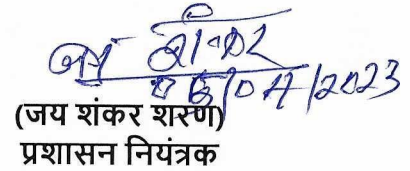 जय शंकर
08/04/2023
(जय शंकर शरण)
प्रशासन नियंत्रक